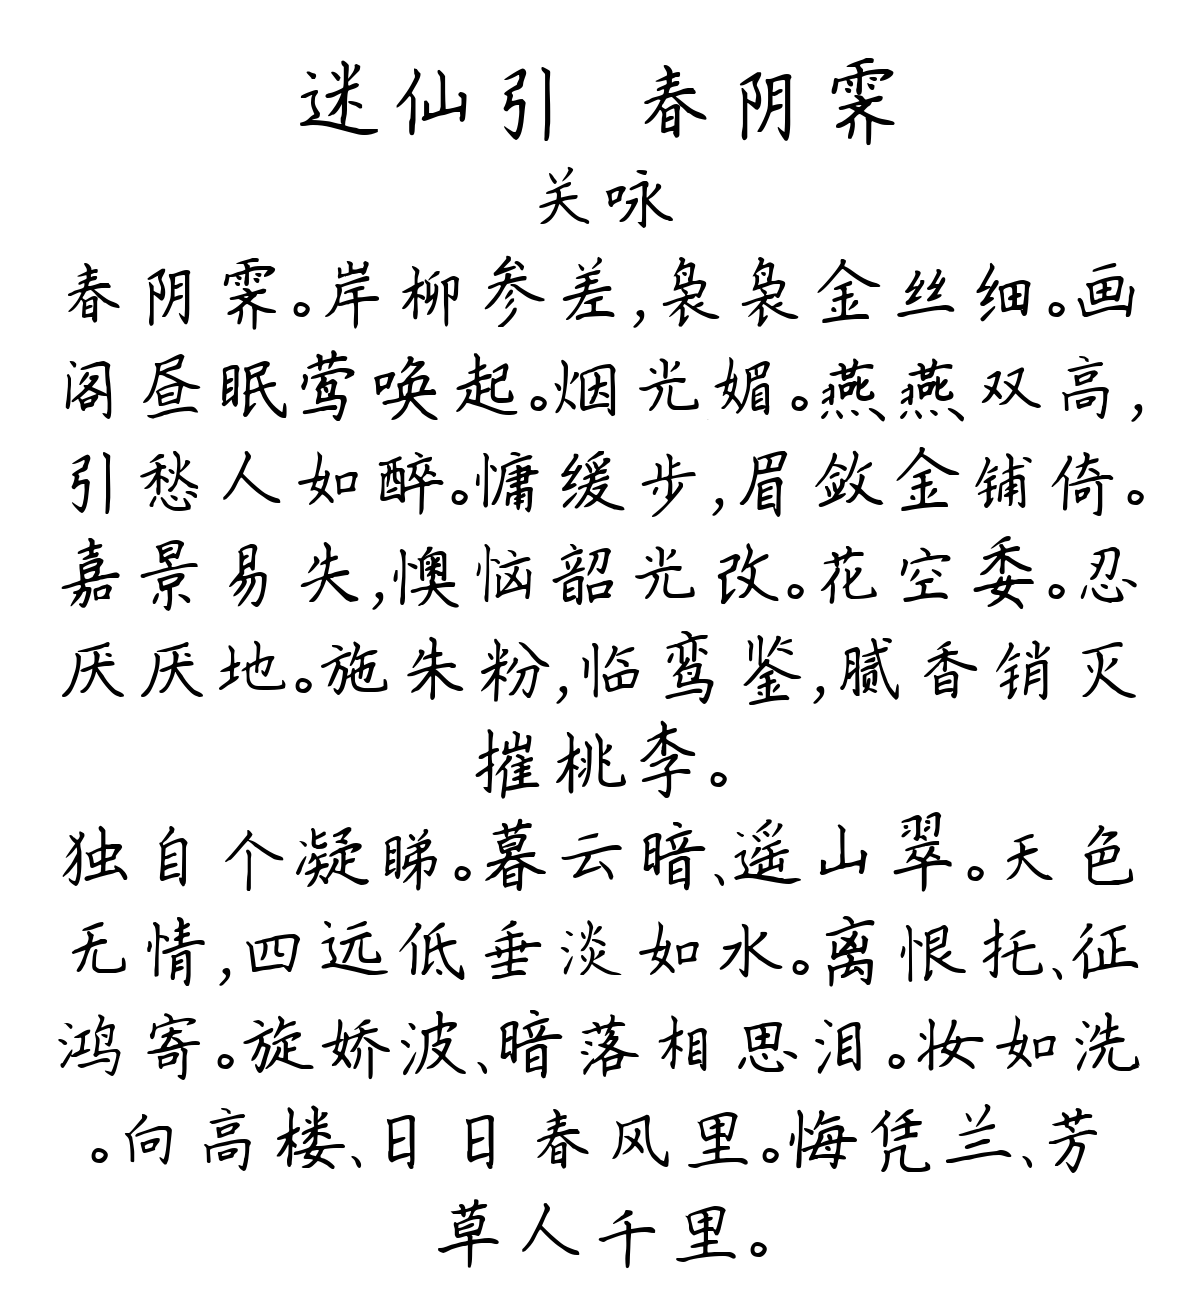 迷仙引 春阴霁
关咏
春阴霁。岸柳参差,袅袅金丝细。画
阁昼眠莺唤起。烟光媚。燕燕双高,
引愁人如醉。慵缓步,眉敛金铺倚。
嘉景易失,懊恼韶光改。花空委。忍
厌厌地。施朱粉,临鸾鉴,腻香销灭
摧桃李。
独自个凝睇。暮云暗、遥山翠。天色
无情,四远低垂淡如水。离恨托、征
鸿寄。旋娇波、暗落相思泪。妆如洗
。向高楼、日日春风里。悔凭兰、芳
草人千里。